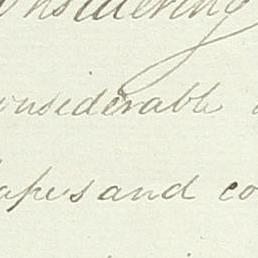 onsidering
onsiderable
apes and co